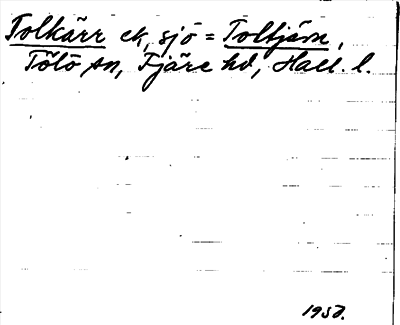 Tolkärr ek, sjö = Toltjärn,
Tölö sn, Fjäre hd, Hall. l.
1950.